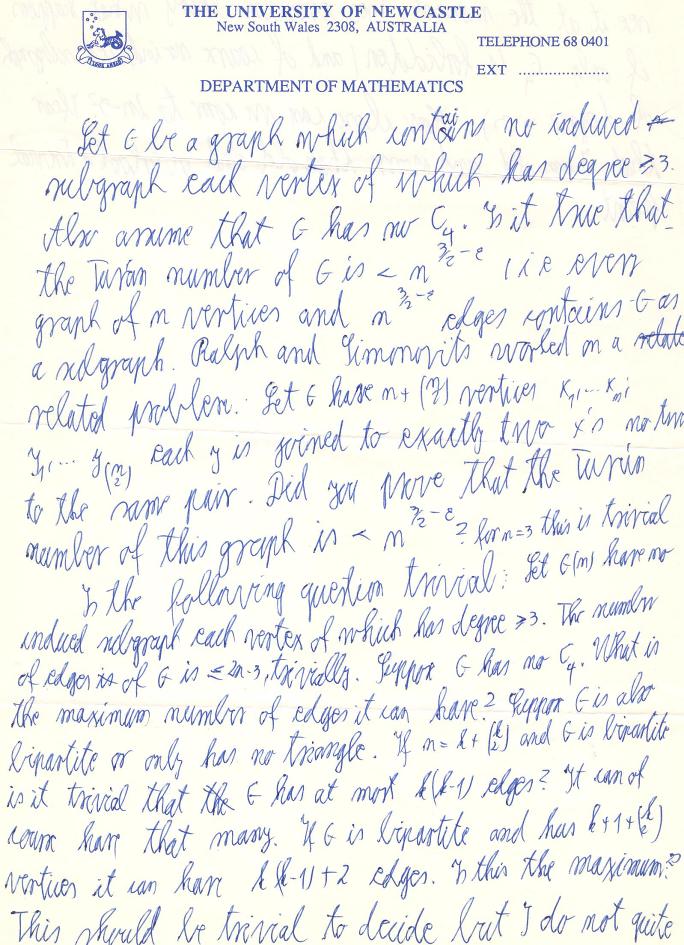 THE UNIVERSITY OF NEWCASTLE
New South Wales 2308, AUSTRALIA
TELEPHONE 68 0401
EXT ......................
DEPARTMENT OF MATHEMATICS
Let G be a graph which contains no induced
subgraph each vertex of which has degree ≥3.
Also assume that G has no C₄. Is it true that
the Turán number of G is < n^{3/2-ε} (i e every
graph of n vertices and n^{3/2-ε} edges contains G as
a subgraph. Ralph and Simonovits worked on a
related problem. Let G have n+(n/2) vertices x₁,... xₙ;
y₁,... y_{(n/2)} each y is joined to exactly two x's no two
to the same pair. Did you prove that the Turán
number of this graph is < n^{3/2-ε} ? for n=3 this is trivial
Is the following question trivial: Let G(n) have no
induced subgraph each vertex of which has degree ≥3. The number
of edges of G is ≤ 2n-3, trivially. Suppose G has no C₄. What is
the maximum number of edges it can have? Suppose G is also
bipartite or only has no triangle. If n = k+(k/2) and G is bipartite
is it trivial that the G has at most k(k-1) edges? It can of
course have that many. If G is bipartite and has k+1+(k/2)
vertices it can have k(k-1)+2 edges. Is this the maximum?
This should be trivial to decide but I do not quite